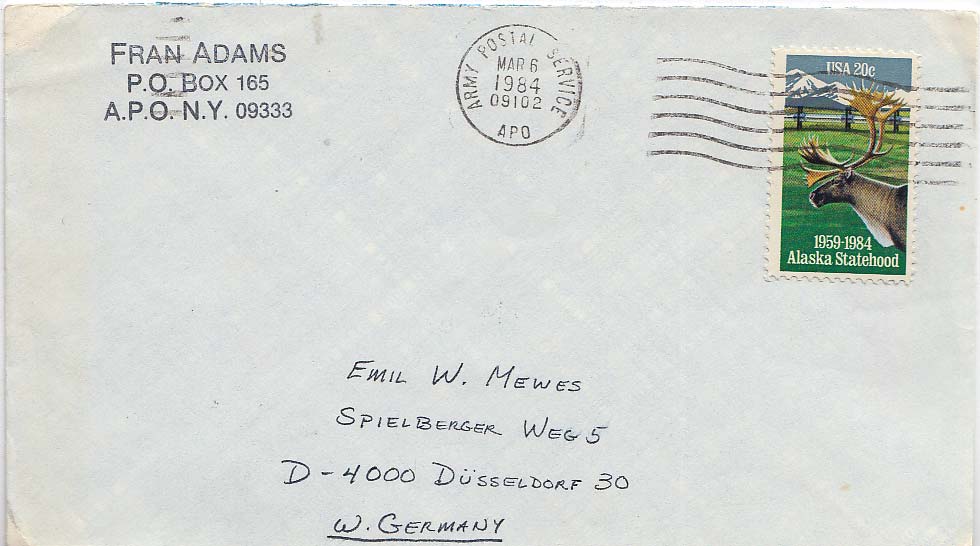 FRAN ADAMS
P.O. BOX 165
A.P.O. N.Y. 09333
ARMY POSTAL SERVICE
MAR 6
1984
09102
APO
USA 20c
1959-1984
Alaska Statehood
EMIL W. MEWES
SPIELBERGER WEG 5
D-4000 DÜSSELDORF 30
W. GERMANY